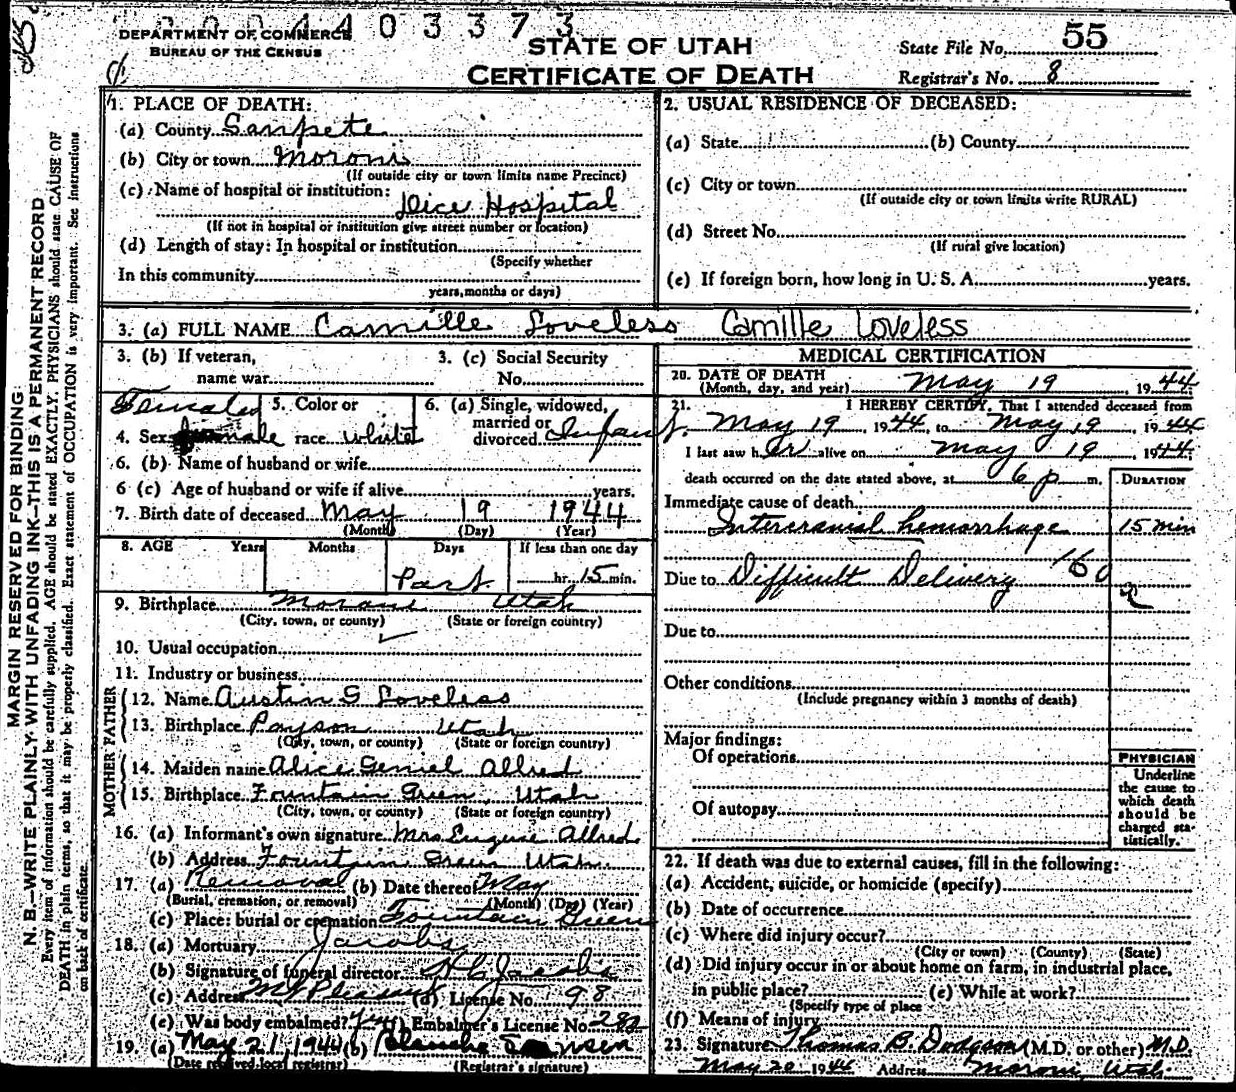 2 0 0 4 4 0 3 3 7 3
DEPARTMENT OF COMMERCE
BUREAU OF THE CENSUS
STATE OF UTAH
CERTIFICATE OF DEATH
State File No. 55
Registrar's No. 8
MARGIN RESERVED FOR BINDING
N. B.—WRITE PLAINLY WITH UNFADING INK—THIS IS A PERMANENT RECORD
Every item of information should be carefully supplied. AGE should be stated EXACTLY. PHYSICIANS should state CAUSE OF
DEATH in plain terms, so that it may be properly classified. Exact statement of OCCUPATION is very important. See instructions
on back of certificate.
1. PLACE OF DEATH:
(a) County Sanpete
(b) City or town Moroni
(If outside city or town limits name Precinct)
(c) Name of hospital or institution:
Dice Hospital
(If not in hospital or institution give street number or location)
(d) Length of stay: In hospital or institution
(Specify whether
In this community
years, months or days)
2. USUAL RESIDENCE OF DECEASED:
(a) State (b) County
(c) City or town
(If outside city or town limits write RURAL)
(d) Street No.
(If rural give location)
(e) If foreign born, how long in U. S. A. years.
3. (a) FULL NAME Camille Loveless Camille Loveless
3. (b) If veteran,
name war
3. (c) Social Security
No.
Female
4. Sex female
5. Color or
race White
6. (a) Single, widowed,
married or
divorced Infant
6. (b) Name of husband or wife
6 (c) Age of husband or wife if alive years.
7. Birth date of deceased May 19 1944
(Month) (Day) (Year)
8. AGE Years Months Days If less than one day
Part hr. 15 min.
9. Birthplace Moroni Utah
(City, town, or county) (State or foreign country)
10. Usual occupation
11. Industry or business
FATHER
12. Name Austin G Loveless
13. Birthplace Payson Utah
(City, town, or county) (State or foreign country)
MOTHER
14. Maiden name Alice Geniel Allred
15. Birthplace Fountain Green, Utah
(City, town, or county) (State or foreign country)
16. (a) Informant's own signature Mrs Eugene Allred
(b) Address Fountain Green Utah
17. (a) Removal (b) Date thereof May
(Burial, cremation, or removal) (Month) (Day) (Year)
(c) Place: burial or cremation Fountain Green
18. (a) Mortuary Jacobs
(b) Signature of funeral director H C Jacobs
(c) Address Mt Pleasant (d) License No. 98
(e) Was body embalmed? (f) Embalmer's License No. 282
19. (a) May 21, 1944 (b) Blanche
(Date received local registrar) (Registrar's signature)
MEDICAL CERTIFICATION
20. DATE OF DEATH
(Month, day, and year) May 19 1944
21. I HEREBY CERTIFY, That I attended deceased from
May 19, 1944, to May 19, 1944
I last saw h er alive on May 19 1944
death occurred on the date stated above, at 6 p m.
DURATION
Immediate cause of death
Intercranial hemorrhage 15 min
Due to Difficult Delivery 160
Due to
Other conditions
(Include pregnancy within 3 months of death)
Major findings:
Of operations
Of autopsy
PHYSICIAN
Underline
the cause to
which death
should be
charged sta-
tistically.
22. If death was due to external causes, fill in the following:
(a) Accident, suicide, or homicide (specify)
(b) Date of occurrence
(c) Where did injury occur?
(City or town) (County) (State)
(d) Did injury occur in or about home on farm, in industrial place,
in public place? (e) While at work?
(Specify type of place
(f) Means of injury
23. Signature Thomas B. Dodgson (M.D. or other) M.D.
May 20 1944 Address Moroni, Utah